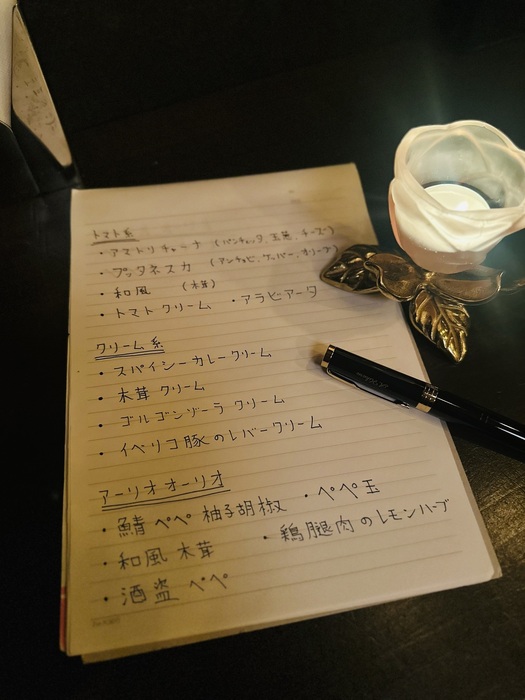 トマト系
・アマトリチャーナ (パンチェッタ、玉葱、チーズ)
・プッタネスカ (アンチョビ、ケッパー、オリーブ)
・和風 (木茸)
・トマトクリーム ・アラビアータ
クリーム系
・スパイシーカレークリーム
・木茸クリーム
・ゴルゴンゾーラ クリーム
・イベリコ豚のレバークリーム
アーリオオーリオ
・鯖ペペ 柚子胡椒 ・ペペ玉
・和風木茸 ・鶏腿肉のレモンハーブ
・酒盗 ペペ